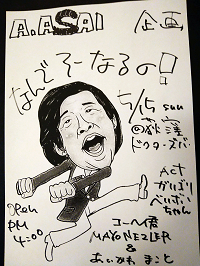 A.ASAI 企画
なんでそーなるの!
5/15 sun
@荻窪
ドクターズバー
ACT
がりばり
べいべい
ちゃん
コーヘイ君
MAYONEZLER
&
あいかわまこと
Open
PM
4:00